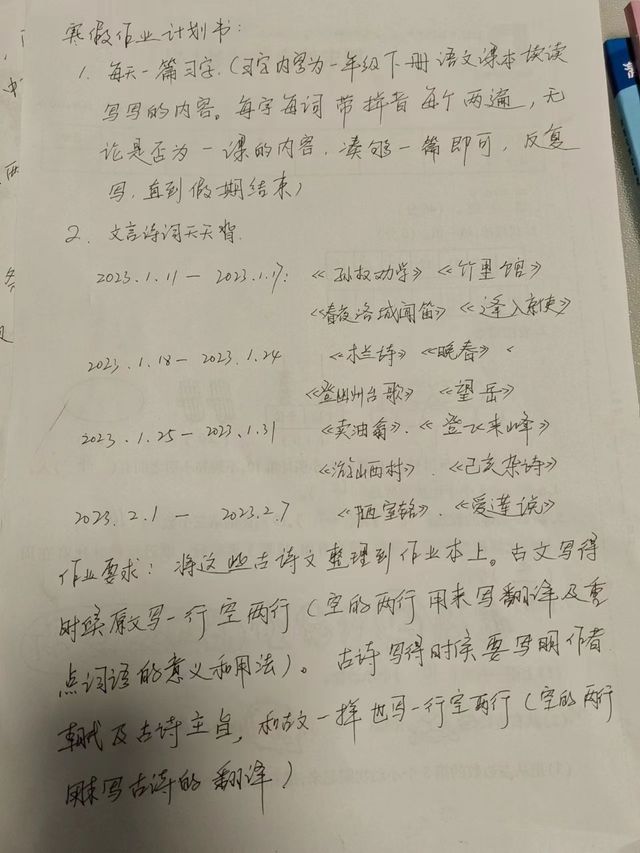 寒假作业计划书:
1. 每天一篇习字.(习字内容为一年级下册语文课本读读
写写的内容。每字每词带拼音每个两遍,无
论是否为一课的内容.凑够一篇即可,反复
写.直到假期结束)
2. 文言诗词天天背.
2023.1.11—2023.1.17: 《孙权劝学》《竹里馆》
《春夜洛城闻笛》《逢入京使》
2023.1.18—2023.1.24 《木兰诗》《晚春》
《登幽州台歌》《望岳》
2023.1.25—2023.1.31 《卖油翁》.《登飞来峰》
《游山西村》.《己亥杂诗》
2023.2.1—2023.2.7 《陋室铭》.《爱莲说》
作业要求:将这些古诗文整理到作业本上。古文写得
时候原文写一行空两行(空的两行用来写翻译及重
点词语的意义和用法)。古诗写得时候要写明作者
朝代及古诗主旨,和古文一样也写一行空两行(空的两行
用来写古诗的翻译)